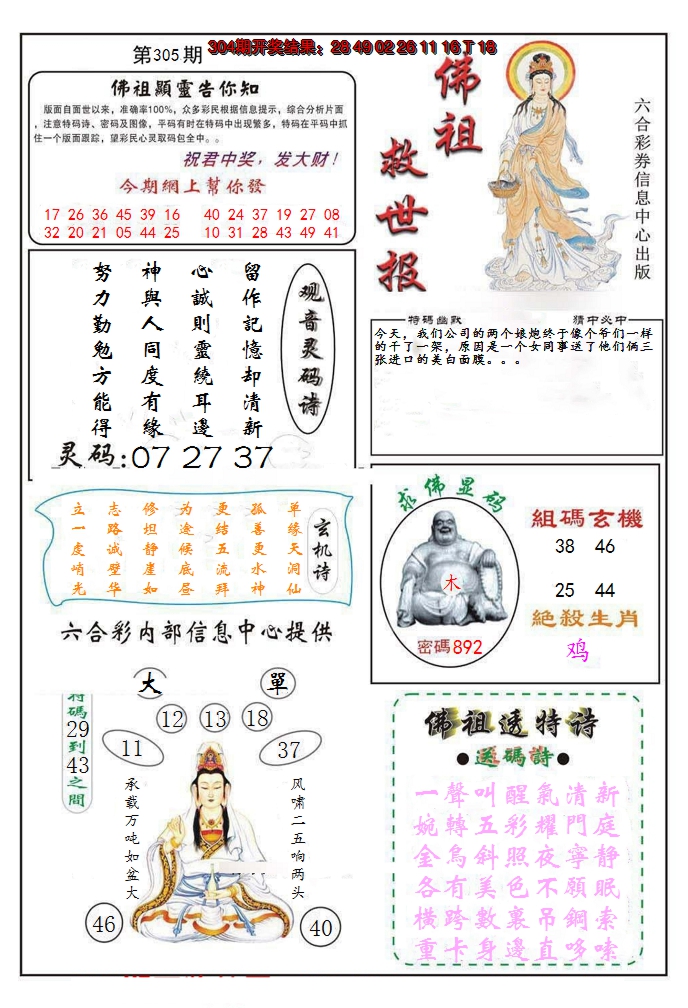 第305期
304期开奖结果：28 49 02 26 11 16 T 18
佛祖顯靈告你知
版面自面世以来，准确率100%，众多彩民根据信息提示，综合分析片面
，注意特码诗、密码及图像，平码有时在特码中出现繁多，特码在平码中抓
住一个版面跟踪，望彩民心灵取码包全中。。
祝君中奖，发大财！
今期網上幫你發
17 26 36 45 39 16 40 24 37 19 27 08
32 20 21 05 44 25 10 31 28 43 49 41
佛祖
救世报
六合彩券信息中心出版
观音灵码诗
留作記憶却清新
心誠則靈繞耳邊
神與人同度有緣
努力勤勉方能得
灵码:07 27 37
特碼幽默
猜中必中
今天，我们公司的两个娘炮终于像个爷们一样
的干了一架，原因是一个女同事送了他们俩三
张进口的美白面膜。。。
玄机诗
单缘天洞仙
孤善更水神
更结五流拜
为途候底昼
修坦静崖如
志路诚壁华
立一虔峭光
六合彩内部信息中心提供
求佛显码
木
密碼892
組碼玄機
38 46
25 44
絶殺生肖
鸡
大
單
特碼29到43之間
12
13
18
11
37
承载万吨如盆大
风啸二五响两头
46
40
佛祖透特诗
●送碼詩●
一聲叫醒氣清新
婉轉五彩耀門庭
金烏斜照夜寧静
各有美色不願眠
橫跨數裏吊鋼索
重卡身邊直哆嗦